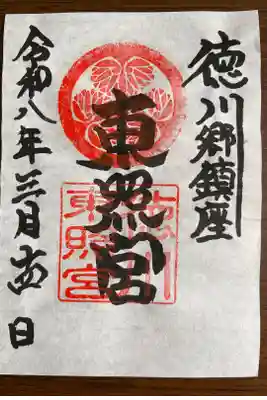 徳川郷鎮座
東照宮
令和八年三月十四日
徳川
東照宮